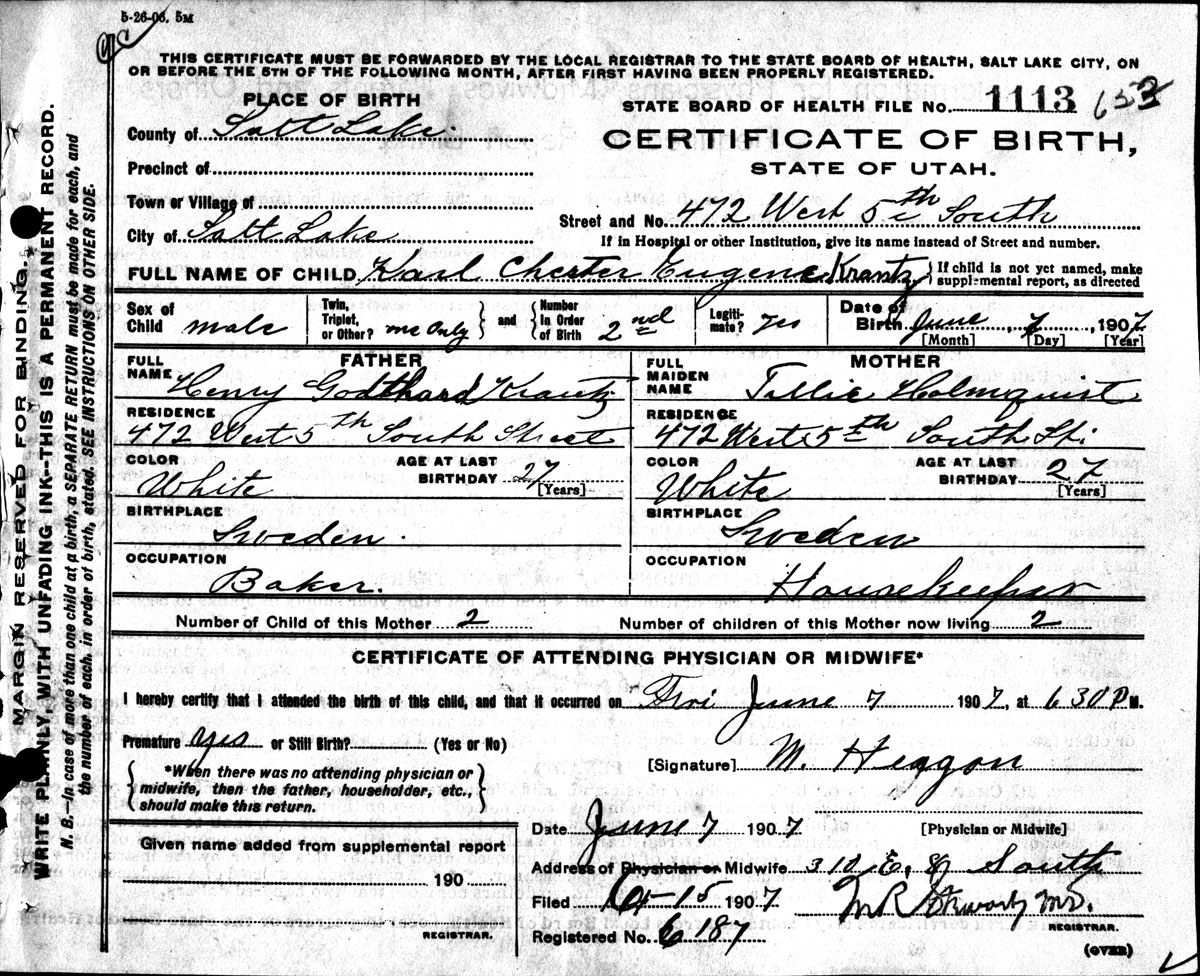 5-26-06. 5M
THIS CERTIFICATE MUST BE FORWARDED BY THE LOCAL REGISTRAR TO THE STATE BOARD OF HEALTH, SALT LAKE CITY, ON
OR BEFORE THE 5TH OF THE FOLLOWING MONTH, AFTER FIRST HAVING BEEN PROPERLY REGISTERED.
PLACE OF BIRTH
STATE BOARD OF HEALTH FILE No. 1113 653
County of Salt Lake.
CERTIFICATE OF BIRTH,
STATE OF UTAH.
Precinct of
Town or Village of
Street and No. 472 West 5th South
City of Salt Lake
If in Hospital or other Institution, give its name instead of Street and number.
FULL NAME OF CHILD Karl Chester Eugene Krantz { If child is not yet named, make
supplemental report, as directed
Sex of Child male
Twin, Triplet, or Other? one only } and { Number In Order of Birth 2nd
Legiti-mate? Yes
Date of Birth June, 7, 1907
[Month] [Day] [Year]
FATHER
FULL NAME Henry Godthard Krantz
RESIDENCE
472 West 5th South Street
COLOR White AGE AT LAST BIRTHDAY 27 [Years]
BIRTHPLACE
Sweden.
OCCUPATION
Baker.
MOTHER
FULL MAIDEN NAME Tillie Holmquist
RESIDENCE
472 West 5th South St.
COLOR White AGE AT LAST BIRTHDAY 27 [Years]
BIRTHPLACE
Sweden
OCCUPATION
Housekeeper
Number of Child of this Mother 2 Number of children of this Mother now living 2
CERTIFICATE OF ATTENDING PHYSICIAN OR MIDWIFE*
I hereby certify that I attended the birth of this child, and that it occurred on Fri June 7 1907, at 6 30 P M.
Premature yes or Still Birth? (Yes or No)
{ *When there was no attending physician or
midwife, then the father, householder, etc.,
should make this return. }
[Signature] M.
Date June 7 1907 [Physician or Midwife]
Given name added from supplemental report
190
REGISTRAR.
Address of Physician or Midwife 310 E. 8 South
Filed 6-15 1907
M.D.
REGISTRAR.
Registered No. 6 187
(OVER)
MARGIN RESERVED FOR BINDING.
WRITE PLAINLY, WITH UNFADING INK--THIS IS A PERMANENT RECORD.
N. B.—In case of more than one child at a birth, a SEPARATE RETURN must be made for each, and
the number of each, in order of birth, stated. SEE INSTRUCTIONS ON OTHER SIDE.